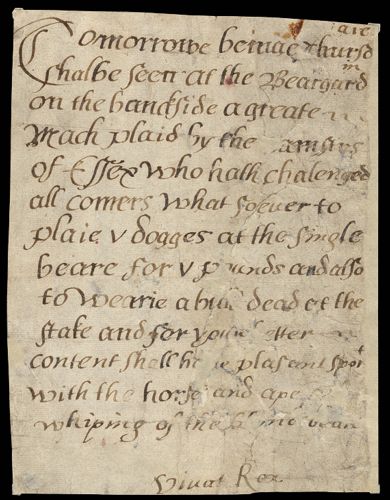 Tomorrowe beinge Thursdaie
shalbe seen at the Beargardin
on the banckside a greate
Mach plaid by the
of Essex who hath chalenged
all comers what soever to
plaie v dogges at the single
beare for v pounds and also
to wearie a bull dead at the
stake and for your better
content shall have plasant sport
with the horse and ape and
whiping of the blind beare
Vivat Rex